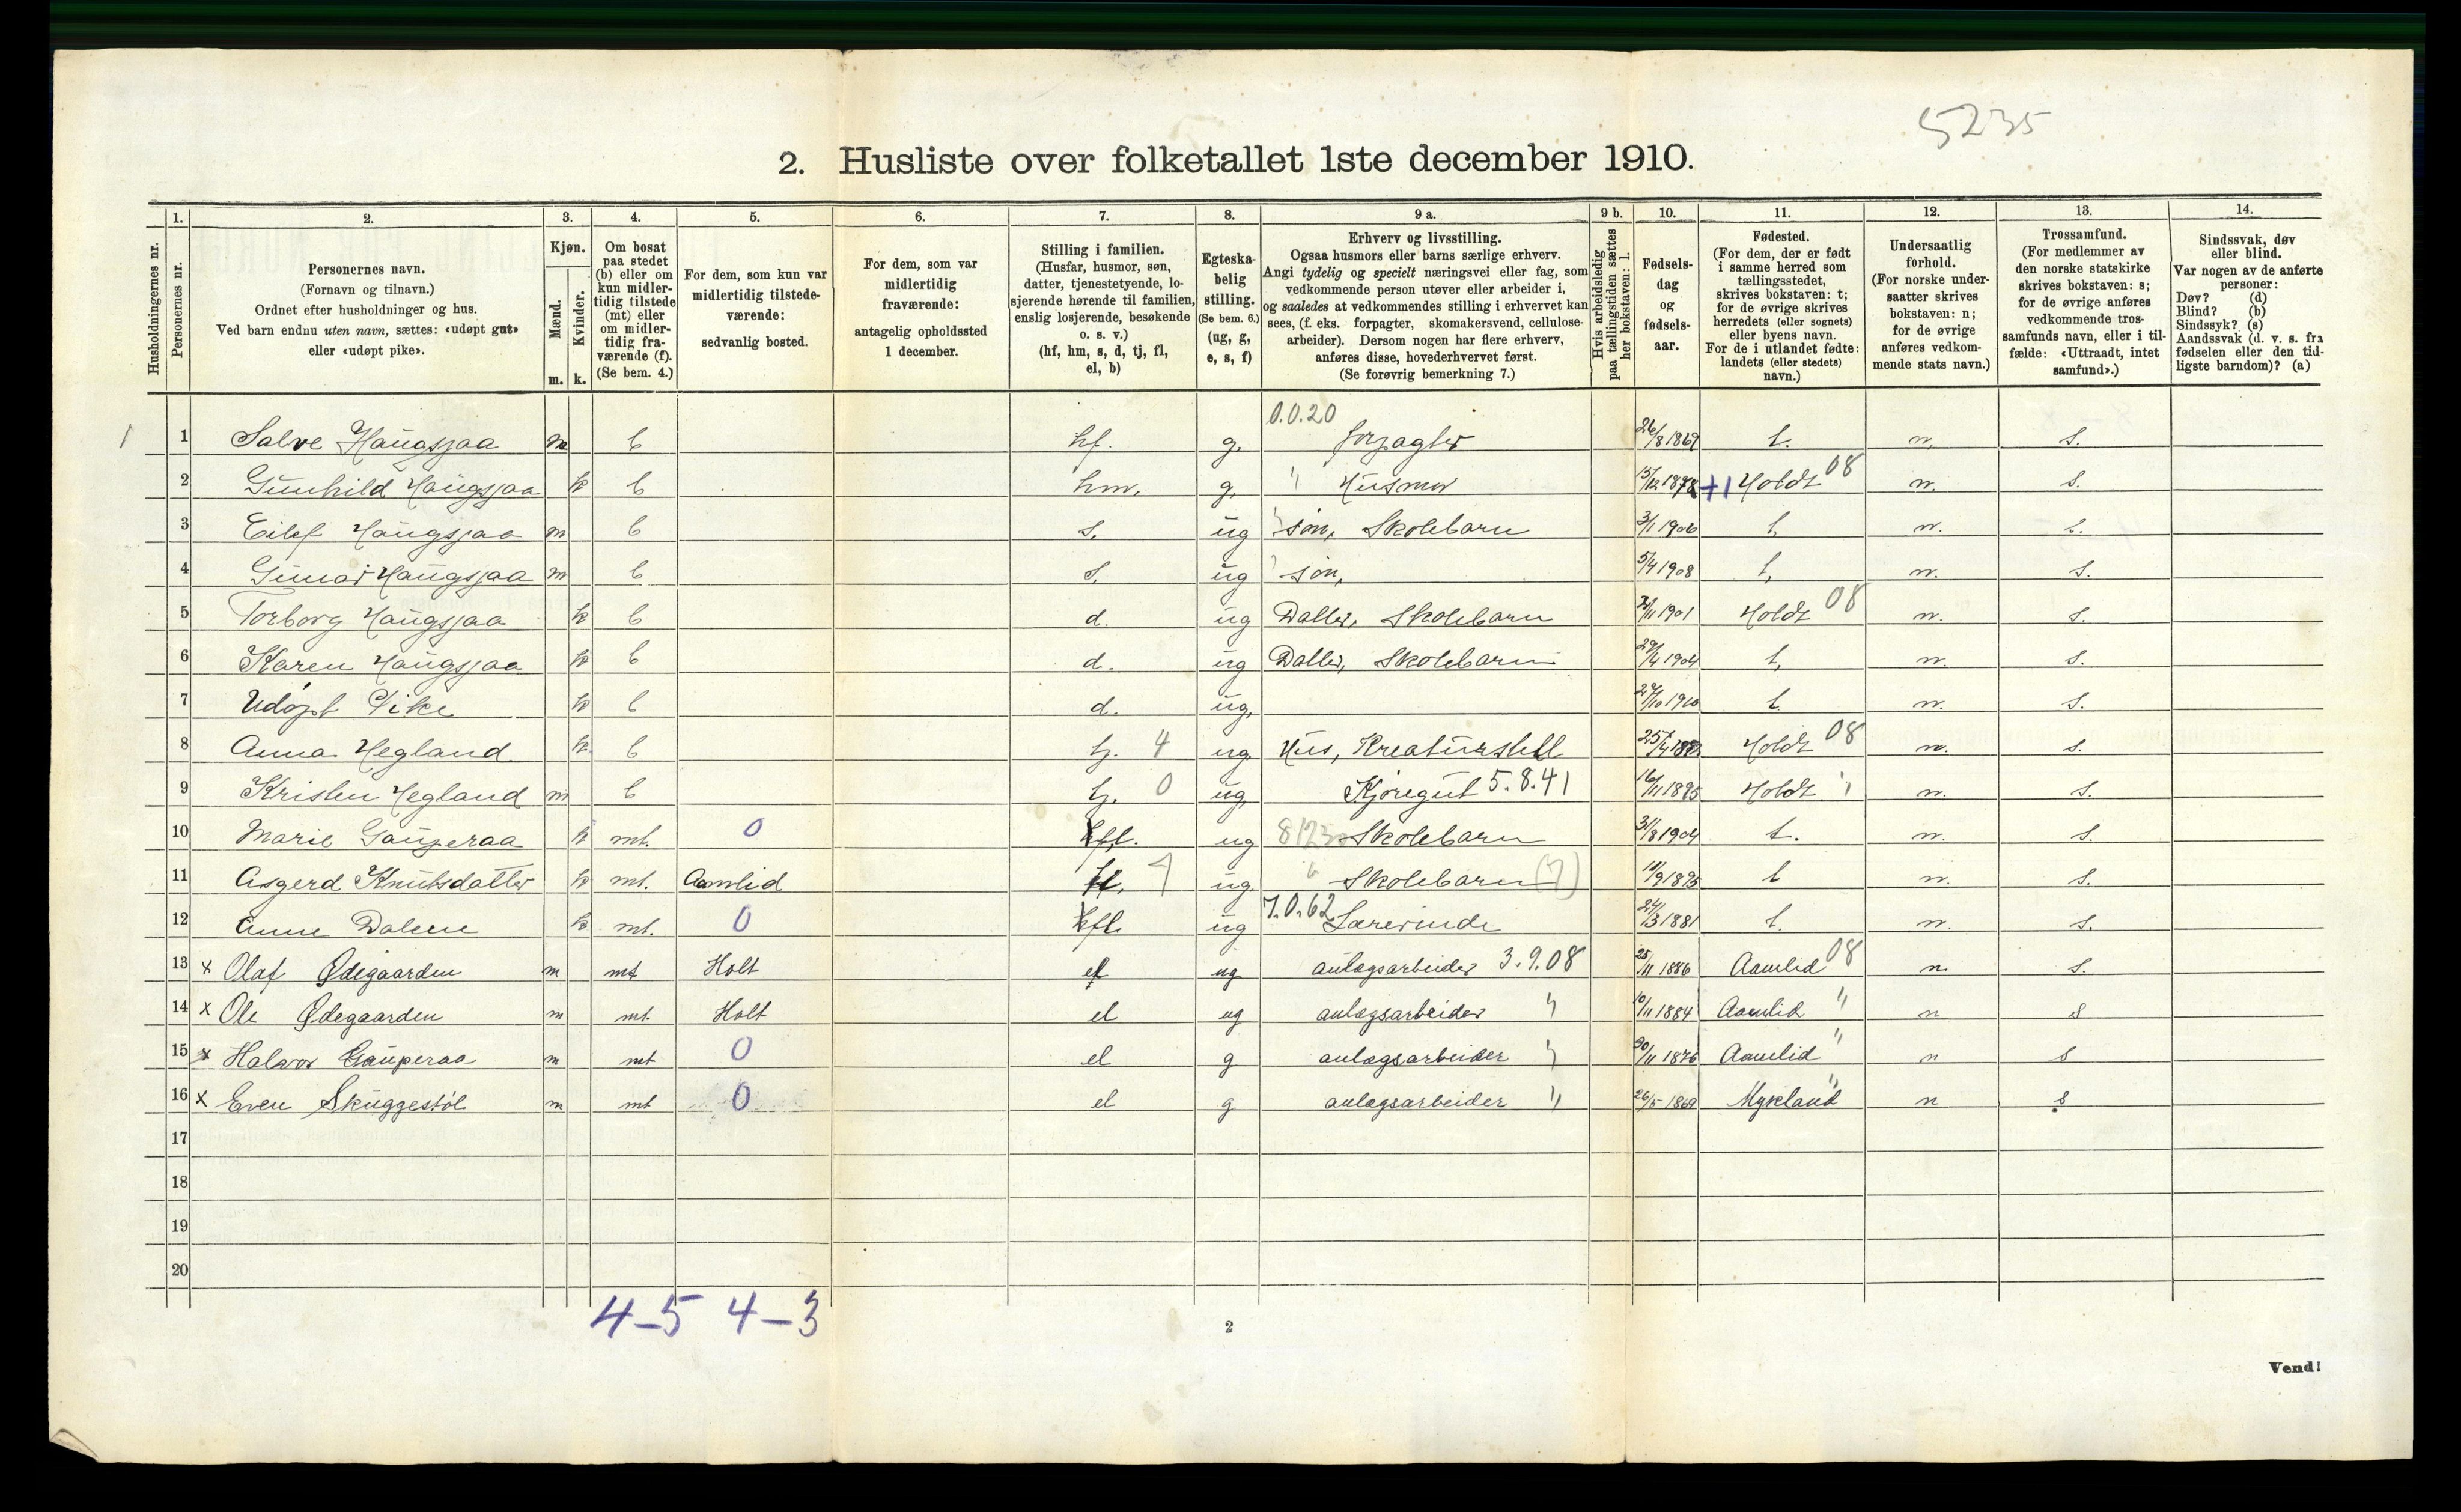 5235
2. Husliste over folketallet 1ste december 1910.
Husholdningernes nr.
1. Personernes nr.
2. Personernes navn. (Fornavn og tilnavn.) Ordnet efter husholdninger og hus. Ved barn endnu uten navn, sættes: «udøpt gut» eller «udøpt pike».
3. Kjøn. Mænd. m. Kvinder. k.
4. Om bosat paa stedet (b) eller om kun midlertidig tilstede (mt) eller om midlertidig fraværende (f). (Se bem. 4.)
5. For dem, som kun var midlertidig tilstedeværende: sedvanlig bosted.
6. For dem, som var midlertidig fraværende: antagelig opholdssted 1 december.
7. Stilling i familien. (Husfar, husmor, søn, datter, tjenestetyende, losjerende hørende til familien, enslig losjerende, besøkende o. s. v.) (hf, hm, s, d, tj, fl, el, b)
8. Egteskabelig stilling. (Se bem. 6.) (ug, g, e, s, f)
9 a. Erhverv og livsstilling. Ogsaa husmors eller barns særlige erhverv. Angi tydelig og specielt næringsvei eller fag, som vedkommende person utøver eller arbeider i, og saaledes at vedkommendes stilling i erhvervet kan sees, (f. eks. forpagter, skomakersvend, cellulosearbeider). Dersom nogen har flere erhverv, anføres disse, hovederhvervet først. (Se forøvrig bemerkning 7.)
9 b. Hvis arbeidsledig paa tællingstiden sættes her bokstaven: l.
10. Fødselsdag og fødselsaar.
11. Fødested. (For dem, der er født i samme herred som tællingsstedet, skrives bokstaven: t; for de øvrige skrives herredets (eller sognets) eller byens navn. For de i utlandet fødte: landets (eller stedets) navn.)
12. Undersaatlig forhold. (For norske undersaatter skrives bokstaven: n; for de øvrige anføres vedkommende stats navn.)
13. Trossamfund. (For medlemmer av den norske statskirke skrives bokstaven: s; for de øvrige anføres vedkommende trossamfunds navn, eller i tilfælde: «Uttraadt, intet samfund».)
14. Sindssvak, døv eller blind. Var nogen av de anførte personer: Døv? (d) Blind? (b) Sindssyk? (s) Aandssvak (d. v. s. fra fødselen eller den tidligste barndom)? (a)
0.0.20
1 1 Salve Haugsjaa m b hf. g. forpagter 26/8 1869 t. n. s.
2 Gunhild Haugsjaa k b hm. g. " Husmor 15/12 1878 +1 Holdt 08 n. s.
3 Eilef Haugsjaa m b s. ug søn, Skolebarn 3/1 1906 t, n. s.
4 Gunar Haugsjaa m b s. ug søn, 5/4 1908 t, n. s.
5 Torborg Haugsjaa k b d. ug Datter, Skolebarn /11 1901 Holdt 08 n. s.
6 Karen Haugsjaa k b d. ug Datter, Skolebarn 29/4 1904 t, n. s.
7 Udøpt Pike k b d. ug, /10 1910 t. n. s.
8 Anna Hegland k b tj. 4 ug. Hus, Kreaturstell 25/4 Holdt 08 n. s.
9 Kristen Hegland m b tj. 0 ug, Kjøregut 5.8.41 16/11 1895 Holdt " n. s.
10 Marie Gauperaa k mt. 0 fl. ug Skolebarn 31/8 1904 t. n. s.
11 Asgerd Knutsdatter k mt. Aamlid ug. Skolebarn (7) /9 1895 t n. s.
12 Anne Dalene k mt. 0 fl. ug 7.0.62 Lærerinde 24/3 1881 t. n. s.
13 x Olaf Ødegaarden m mt Holt el ug anlægsarbeider 3.9.08 25/11 1886 Aamlid 08 n. s.
14 x Ole Ødegaarden m mt. Holt el ug anlægsarbeider " 10/11 1884 Aamlid " n s
15 x Halvor Gauperaa m mt 0 el g anlægsarbeider " 30/11 1876 Aamlid " n s
16 x Even Skuggestøl m mt 0 el g anlægsarbeider " 26/5 1869 Mykland " n s
17
18
19
20
4-5 4-3
2
Vend!